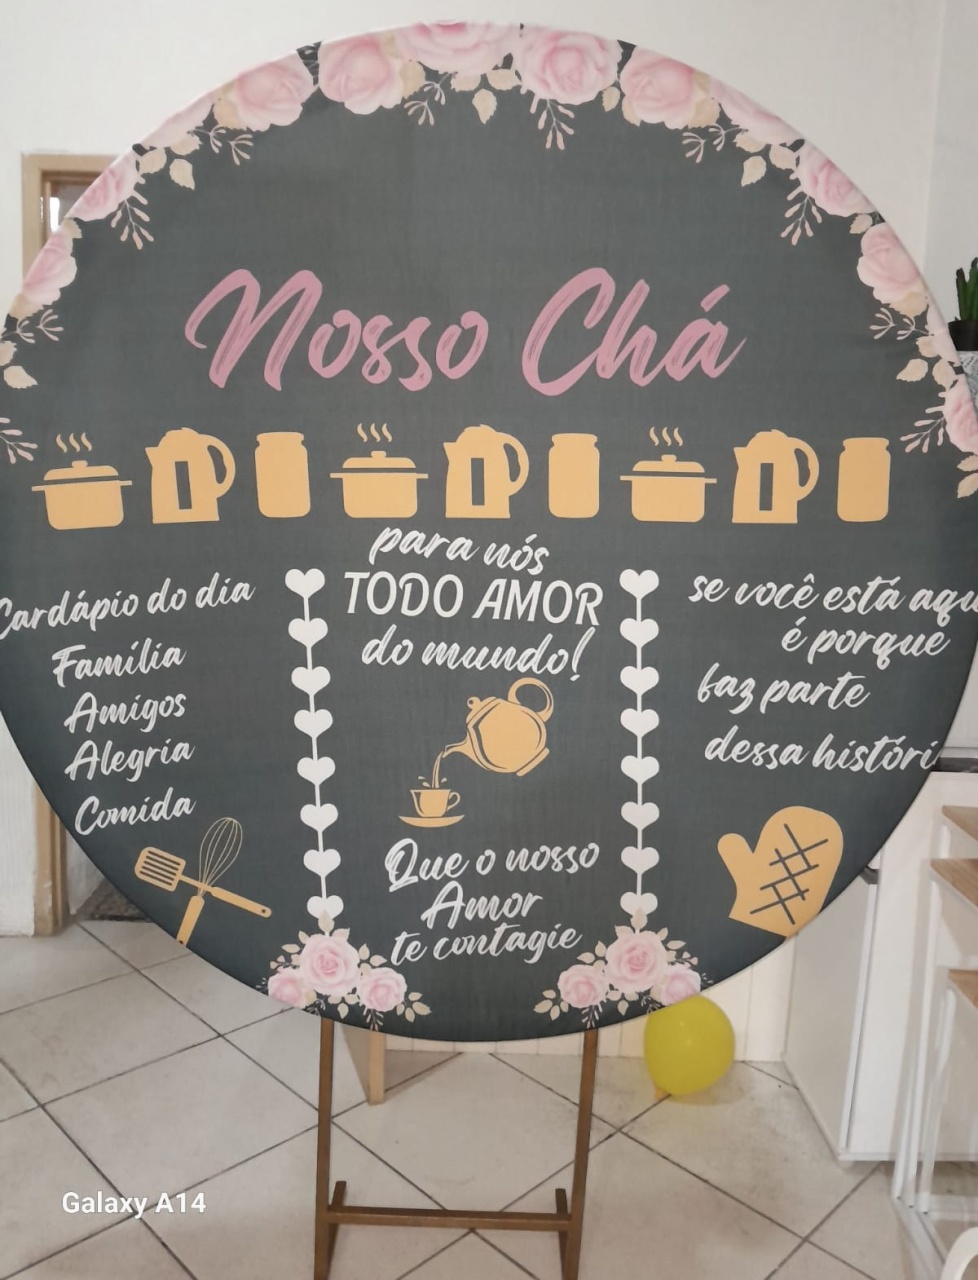 Nosso Chá
Cardápio do dia
Família
Amigos
Alegria
Comida
para nós
TODO AMOR
do mundo!
Que o nosso
Amor
te contagie
se você está aqu
é porque
faz parte
dessa históri
Galaxy A14